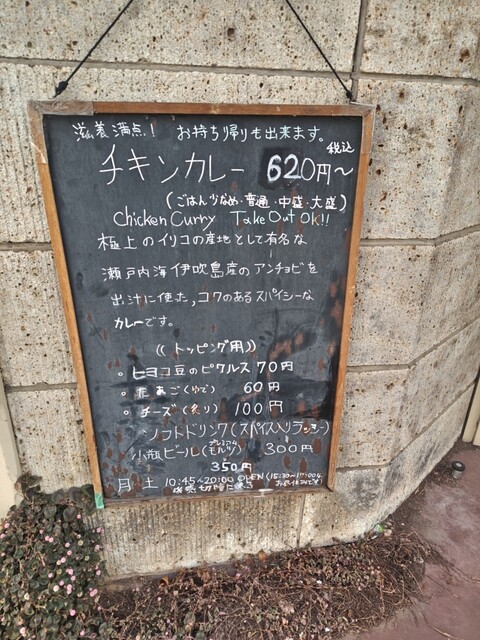 滋養満点! お持ち帰りも出来ます。
チキンカレー 620円〜 税込
(ごはん少なめ・普通・中盛・大盛)
Chicken Curry Take Out OK!!
極上のイリコの産地として有名な
瀬戸内海伊吹島産のアンチョビを
出汁に使た,コクのあるスパイシーな
カレーです。
((トッピング用))
・ヒヨコ豆のピクルス 70円
・玉子(ゆで) 60円
・チーズ(炙り) 100円
ソフトドリンク(スパイス入りラッシー)
小瓶ビール(プレミアムモルツ) 300円
350円
月 土 10:45~20:00 OPEN (15:30~17:00